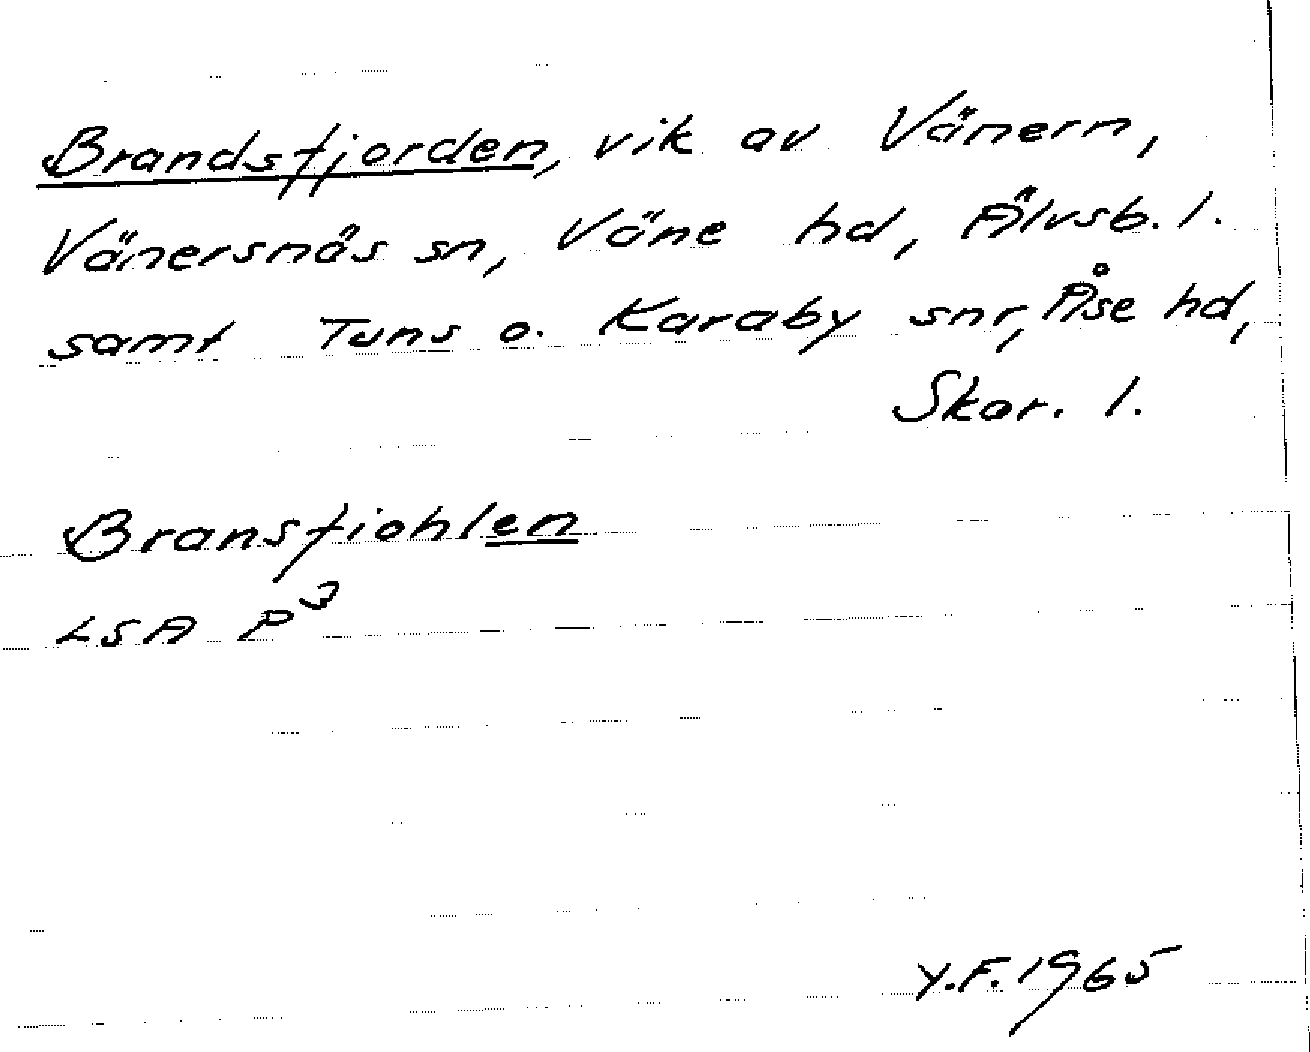 Brandsfjorden, vik av Vänern,
Vänersnäs sn, Väne hd, Älvsb. l.
samt Tuns o. Karaby snr, Åse hd,
Skar. l.
Bransfiohlen
LSA P3
Y.F. 1965